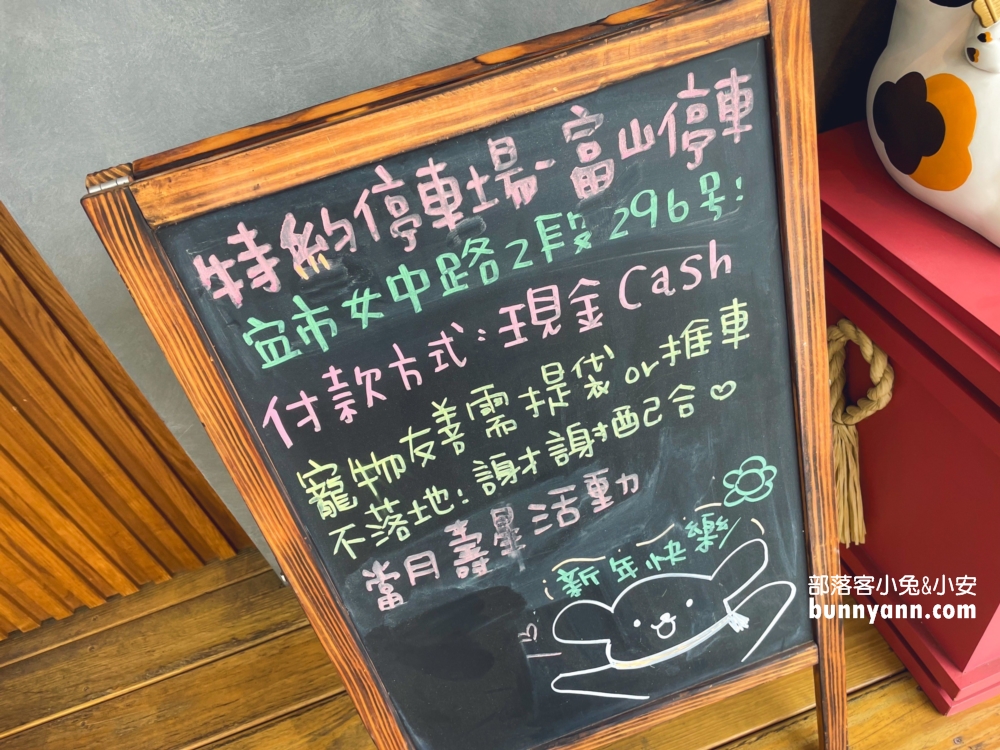 特約停車場-富山停車
宜市女中路2段296号:
付款方式:現金Cash
寵物友善需提袋or推車
不落地:謝謝配合♡
當月壽星活動
新年快樂
部落客小兔&小安
bunnyann.com